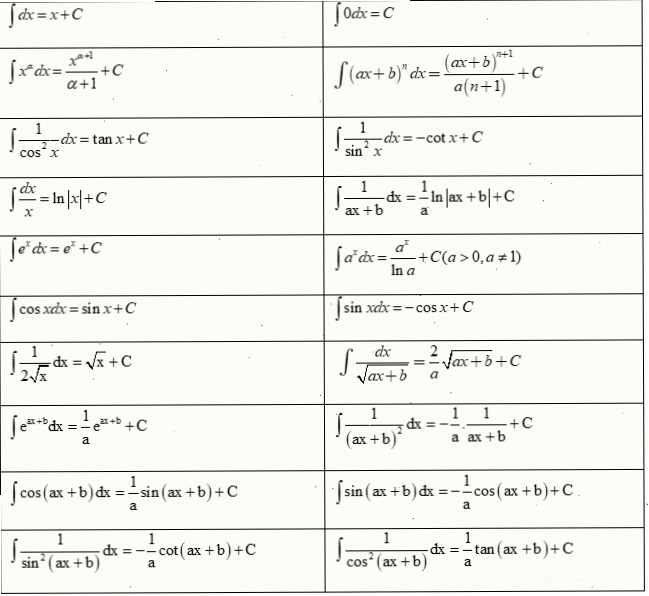 ∫dx = x + C
∫0dx = C
∫x^α dx = x^(α+1)/(α+1) + C
∫(ax+b)^n dx = (ax+b)^(n+1)/(a(n+1)) + C
∫1/(cos² x) dx = tan x + C
∫1/(sin² x) dx = −cot x + C
∫dx/x = ln|x| + C
∫1/(ax+b) dx = 1/a ln|ax+b| + C
∫e^x dx = e^x + C
∫a^x dx = a^x/(ln a) + C(a > 0, a ≠ 1)
∫cos xdx = sin x + C
∫sin xdx = −cos x + C
∫1/(2√x) dx = √x + C
∫dx/√(ax+b) = 2/a √(ax+b) + C
∫e^(ax+b) dx = 1/a e^(ax+b) + C
∫1/(ax+b)² dx = −1/a . 1/(ax+b) + C
∫cos(ax+b)dx = 1/a sin(ax+b) + C
∫sin(ax+b)dx = −1/a cos(ax+b) + C
∫1/(sin²(ax+b)) dx = −1/a cot(ax+b) + C
∫1/(cos²(ax+b)) dx = 1/a tan(ax+b) + C